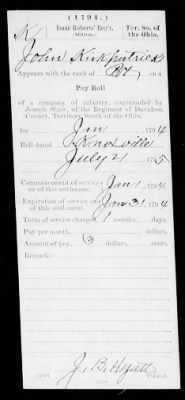 (1794.)
K | Isaac Roberts' Reg't. | Ter. So. of the Ohio.
(Militia.)
John Kirkpatrick
Appears with the rank of Pvt on a
Pay Roll
of a company of infantry, commanded by
Joseph Shaw, of the Regiment of Davidson
County, Territory South of the Ohio,
for Jan , 1794
Roll dated Knoxville
July 21 , 1795
Commencement of service or of this settlement, Jan 1 , 1794
Expiration of service or of this settlement, Jan 31 , 1794
Term of service charged, 1 months, days
Pay per month, dollars
Amount of pay, 3 dollars
Remarks:
Jas B. Hyatt
Copyist.